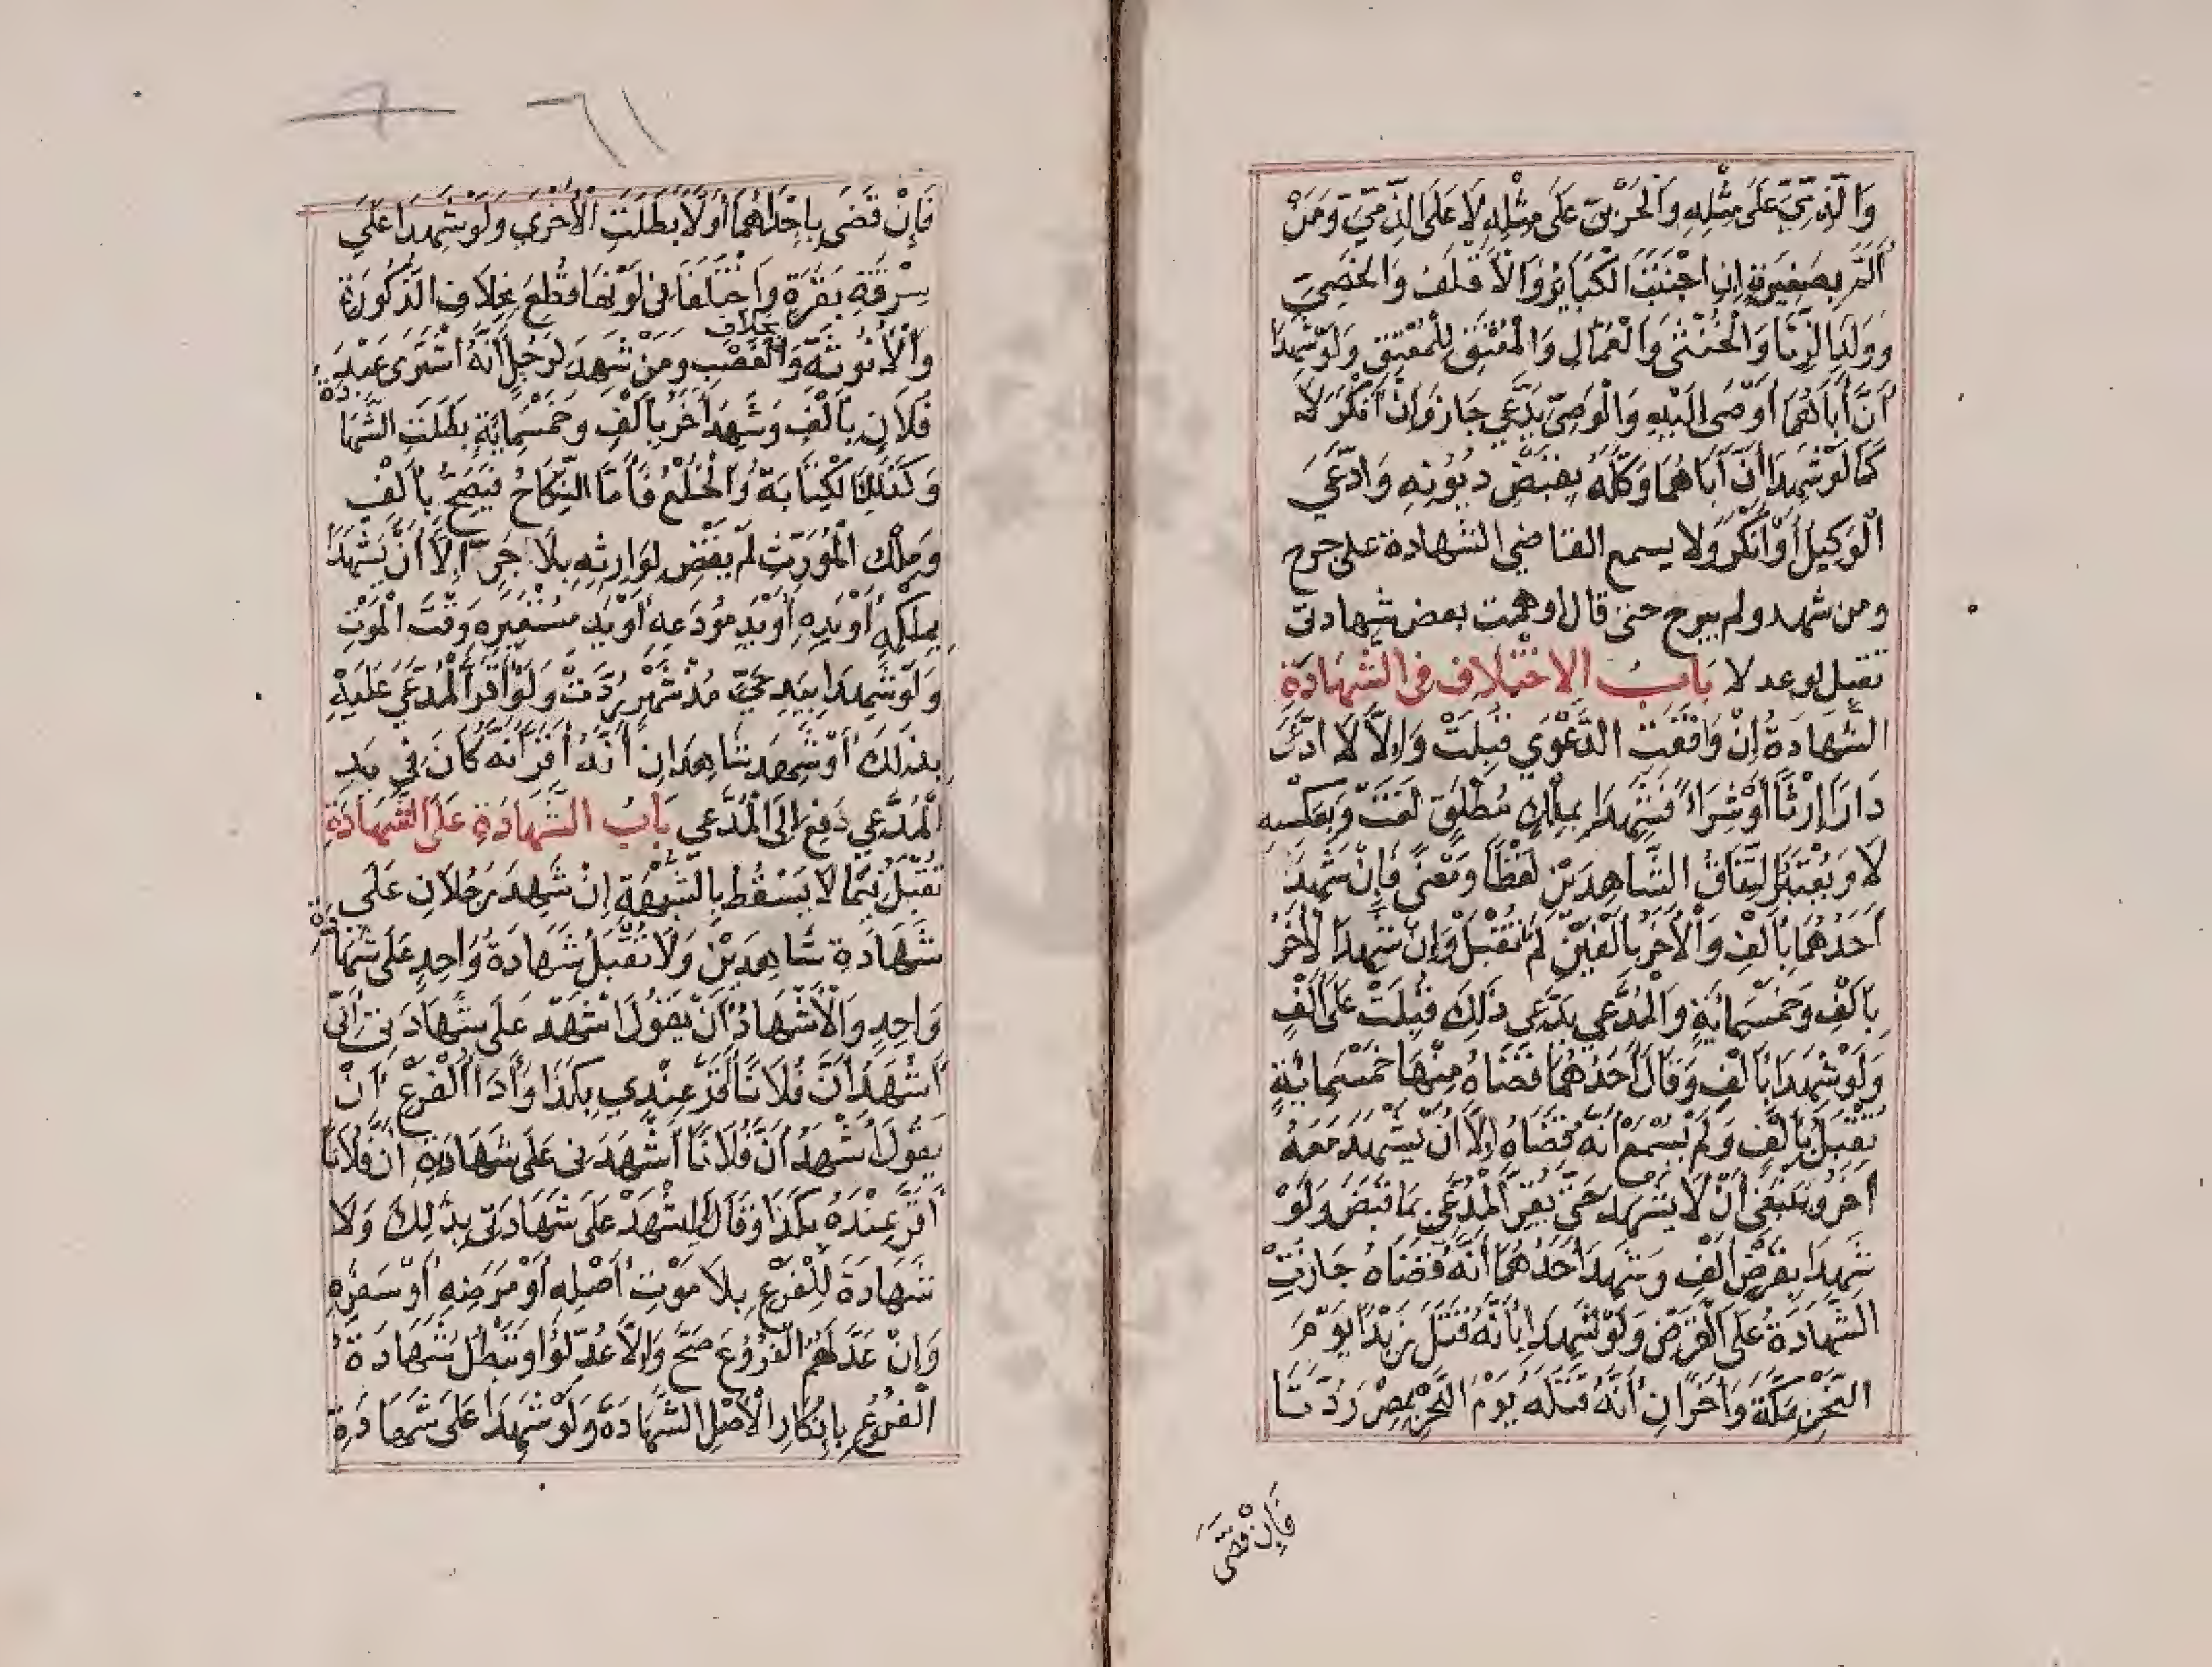 وَالذِّمِّيِّ عَلَى مِثْلِهِ وَالْحَرْبِيِّ عَلَى مِثْلِهِ لَا عَلَى الذِّمِّيِّ وَمَنْ
أَلَمَّ بِصَغِيرَةٍ إِنِ اجْتَنَبَ الْكَبَائِرَ وَالْأَقْلَفِ وَالْخَصِيِّ
وَوَلَدِ الزِّنَا وَالْخُنْثَى وَالْعُمَّالِ وَالْمُعْتِقِ لِلْمُعْتَقِ وَلَوْ شَهِدَا
أَنَّ أَبَاهُمَا أَوْصَى إِلَيْهِ وَالْوَصِيُّ يَدَّعِي جَازَ وَإِنْ أَنْكَرَ لَا
كَمَا لَوْ شَهِدَا أَنَّ أَبَاهُمَا وَكَّلَهُ بِقَبْضِ دُيُونِهِ وَادَّعَى
الْوَكِيلُ أَوْ أَنْكَرَ وَلَا يسمع القاضي الشهادة على جرح
ومن شهد ولم يبرح حتى قال أوهمت بعض شهادتى
تقبل لو عدلا بَابُ الاخْتِلَافِ فِى الشَّهَادَةِ
الشَّهَادَةُ إِنْ وَافَقَتِ الدَّعْوَي قُبِلَتْ وَإِلَّا لَا ادَّعَى
دَارًا إِرْثًا أَوْ شِرَاءً فَشَهِدَا بِمِلْكٍ مُطْلَقٍ لَغَتْ وَبِعَكْسِهِ
لَا وَيُعْتَبَرُ اتِّفَاقُ الشَّاهِدَيْنِ لَفْظًا وَمَعْنًى فَإِنْ شَهِدَ
أَحَدُهُمَا بِأَلْفٍ وَالْآخَرُ بِأَلْفَيْنِ لَمْ تُقْبَلْ وَإِنْ شَهِدَ الْآخَرُ
بِأَلْفٍ وَخَمْسِمِائَةٍ وَالْمُدَّعِي يَدَّعِي ذَلِكَ قُبِلَتْ عَلَى أَلْفٍ
وَلَوْ شَهِدَا بِأَلْفٍ وَقَالَ أَحَدُهُمَا قَضَاهُ مِنْهَا خَمْسَمِائَةٍ
تُقْبَلُ بِأَلْفٍ وَلَمْ يُسْمَعْ أَنَّهُ قَضَاهُ إِلَّا أَنْ يَشْهَدَ مَعَهُ
آخَرُ وَيَنْبَغِي أَنْ لَا يَشْهَدَ حَتَّى يُقِرَّ الْمُدَّعِي بِمَا قَبَضَ وَلَوْ
شَهِدَا بِقَرْضِ أَلْفٍ وَشَهِدَ أَحَدُهُمَا أَنَّهُ قَضَاهُ جَازَتْ
الشَّهَادَةُ عَلَى الْقَرْضِ وَلَوْ شَهِدَا بِأَنَّهُ قَتَلَ زَيْدًا يَوْمَ
النَّحْرِ بِمَكَّةَ وَآخَرَانِ أَنَّهُ قَتَلَهُ يَوْمَ النَّحْرِ بِمِصْرَ رُدَّتَا
فَإِنْ قَضَى
٦١
فَإِنْ قَضَى بِإِحْدَاهُمَا أَوَّلًا بَطَلَتِ الْأُخْرَى وَلَوْ شَهِدَا عَلَى
بِسَرِقَةِ بَقَرَةٍ وَاخْتَلَفَا فِى لَوْنِهَا قُطِعَ بِخِلَافِ الذُّكُورَةِ
بخلاف
وَالْأُنُوثَةِ وَالْغَصْبِ وَمَنْ شَهِدَ لِرَجُلٍ أَنَّهُ اشْتَرَى عَبْدَ
فُلَانٍ بِأَلْفٍ وَشَهِدَ آخَرُ بِأَلْفٍ وَخَمْسِمِائَةٍ بَطَلَتِ الشَّهَا دة
وَكَذَلِكَ الْكِتَابَةُ وَالْخُلْعُ فَأَمَّا النِّكَاحُ فَيَصِحُّ بِأَلْفٍ
وَمِلْكُ الْمُوَرِّثِ لَمْ يُقْضَ لِوَارِثِهِ بِلَا جَرٍّ إِلَّا أَنْ يَشْهَدَا
بِمِلْكِهِ أَوْ يَدِهِ أَوْ يَدِ مُودَعِهِ أَوْ يَدِ مُسْتَعِيرِهِ وَقْتَ الْمَوْتِ
وَلَوْ شَهِدَا بِيَدِ حَيٍّ مُذْ شَهْرٍ رُدَّتْ وَلَوْ أَقَرَّ الْمُدَّعَى عَلَيْهِ
بِذَلِكَ أَوْ شَهِدَ شَاهِدَانِ أَنَّهُ أَقَرَّ أَنَّهُ كَانَ فِي يَدِ
الْمُدَّعِي دُفِعَ إِلَى الْمُدَّعِى بَابُ الشَّهَادَةِ عَلَى الشَّهَادَةِ
تُقْبَلُ فِيمَا لَا يَسْقُطُ بِالشُّبْهَةِ إِنْ شَهِدَ رَجُلَانِ عَلَى
شَهَادَةِ شَاهِدَيْنِ وَلَا تُقْبَلُ شَهَادَةُ وَاحِدٍ عَلَى شَهَا دة
وَاحِدٍ وَالْأَشْهَادُ أَنْ يَقُولَ اشْهَدْ عَلَى شَهَادَتِى أَنِّى
أَشْهَدُ أَنَّ فُلَانًا أَقَرَّ عِنْدِي بِكَذَا وَأَدَاءُ الْفَرْعِ أَنْ
يَقُولَ أَشْهَدُ أَنَّ فُلَانًا أَشْهَدَنِى عَلَى شَهَادَتِهِ أَنَّ فُلَانًا
أَقَرَّ عِنْدَهُ بِكَذَا وَقَالَ لِى اشْهَدْ عَلَى شَهَادَتِى بِذَلِكَ وَلَا
شَهَادَةَ لِلْفَرْعِ بِلَا مَوْتِ أَصْلِهِ أَوْ مَرَضِهِ أَوْ سَفَرِهِ
وَإِنْ عَدَّلَهُمُ الْفُرُوعُ صَحَّ وَإِلَّا عُدِّلُوا وَتَبْطُلُ شَهَادَةُ
الْفُرُوعِ بِإِنْكَارِ الْأَصْلِ الشَّهَادَةَ وَلَوْ شَهِدَا عَلَى شَهَادَةِ